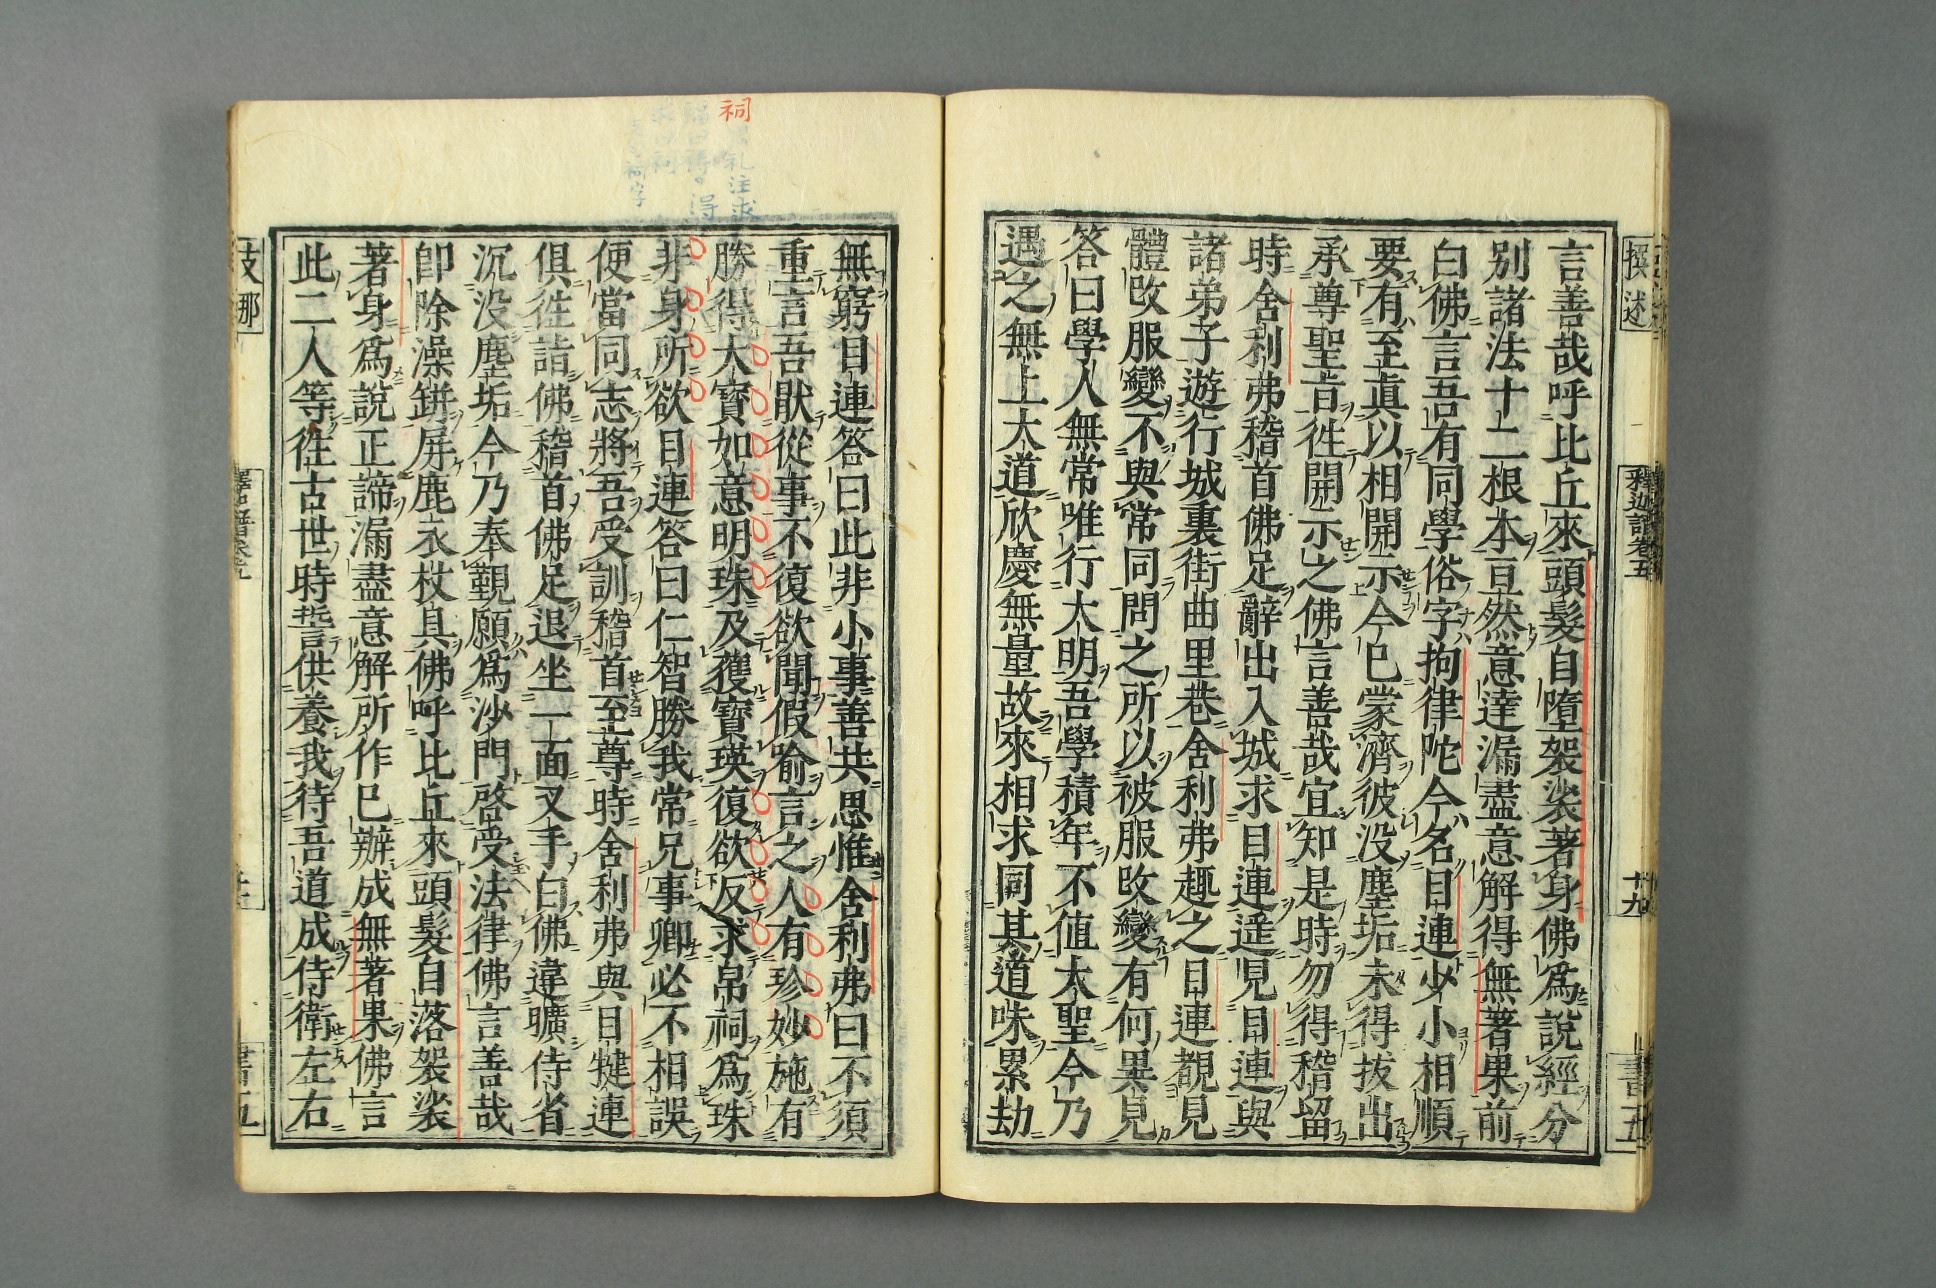 言善哉呼比丘來頭髮自墮袈裟著身佛爲說經分
別諸法十二根本亘然意達漏盡意解得無著果前
白佛言吾有同學俗字拘律陀今名目連少小相順
要有至眞以相開示今已蒙濟彼没塵垢未得拔出
承尊聖旨徃開示之佛言善哉宜知是時勿得稽留
時舍利弗稽首佛足辭出入城求目連遥見目連與
諸弟子遊行城裏街曲里巷舍利弗趣之目連覩見
體攺服變不與常同問之所以被服攺變有何異見
答曰學人無常唯行大明吾學積年不值大聖今乃
遇之無上大道欣慶無量故來相求同其道味累劫
無窮目連答曰此非小事善共思惟舍利弗曰不須
重言吾猒從事不復欲聞假喻言之人有珍妙施有
勝得大寶如意明珠及獲寶瑛復欲反求帛祠爲珠
非身所欲目連答曰仁智勝我常兄事卿必不相誤
便當同志將吾受訓稽首至尊時舍利弗與目揵連
俱徃詣佛稽首佛足退坐一面叉手白佛違曠侍省
沉没塵垢今乃奉覲願爲沙門啓受法律佛言善哉
卽除澡缾屏鹿衣杖具佛呼比丘來頭髮自落袈裟
著身爲說正諦漏盡意解所作已辦成無著果佛言
此二人等徃古世時誓供養我待吾道成侍衛左右
撰述
釋迦譜卷五
十九
書五
支那
祠